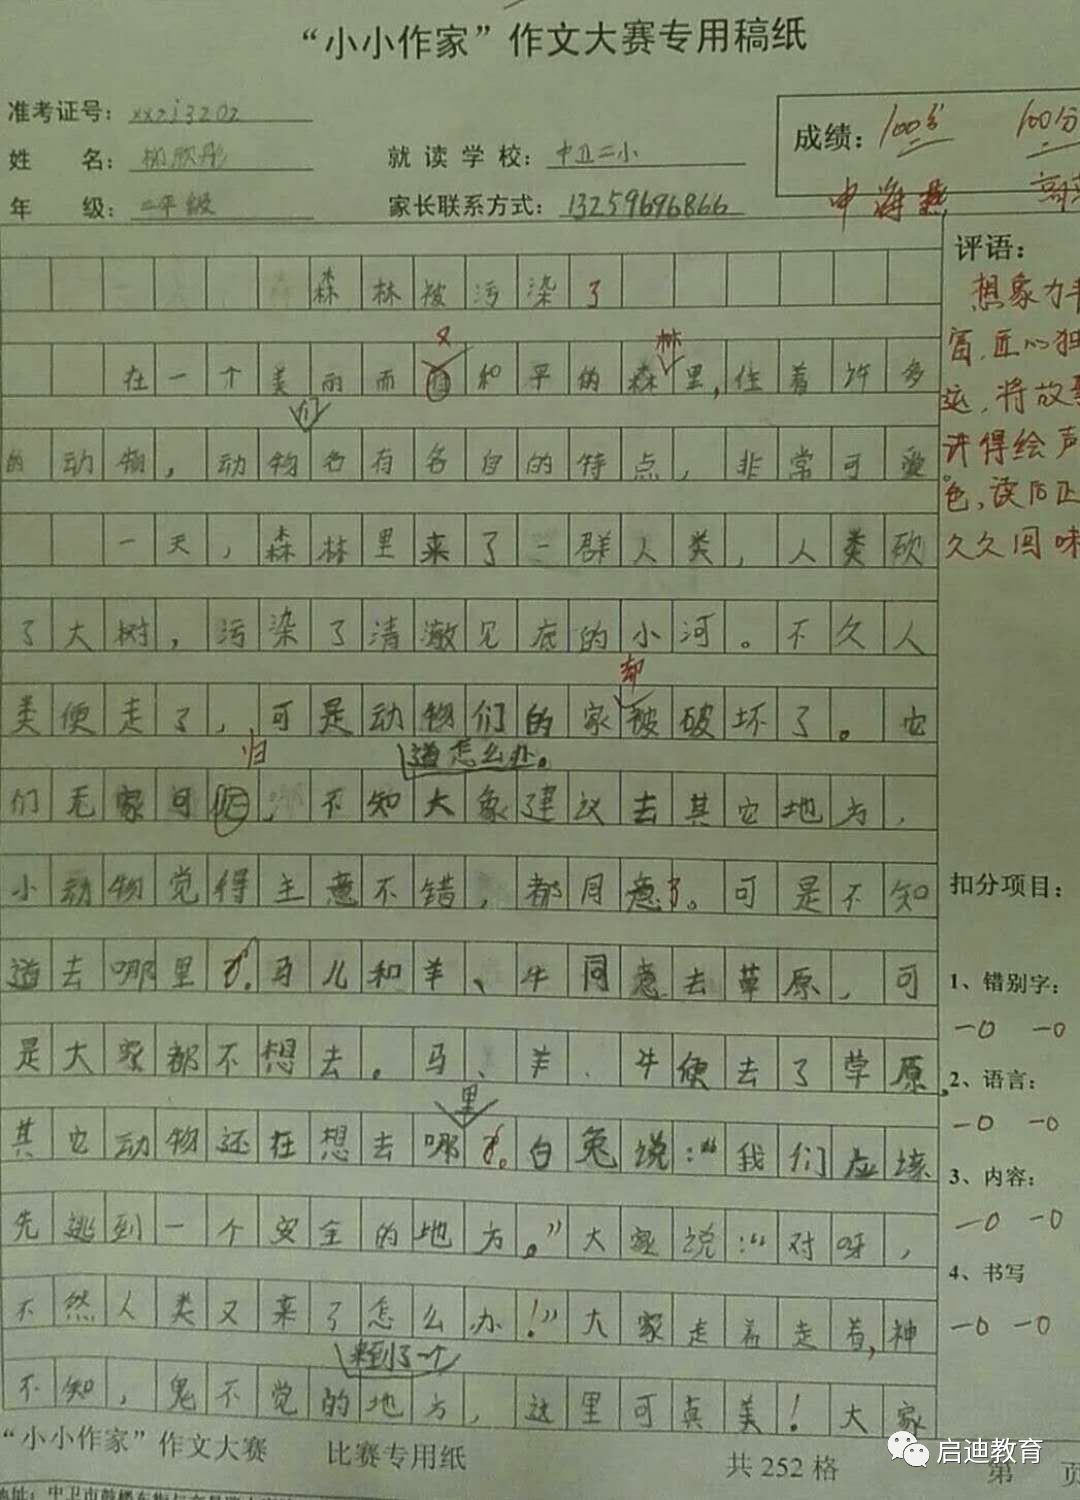 “小小作家”作文大赛专用稿纸
准考证号：xxzj3202
成绩：100分 100分
姓 名：柳欣彤
就读学校：中卫二小
年 级：二年级
家长联系方式：13259696866
申海燕
评语：
想象力丰
富，匠心独
运，将故事
讲得绘声
色，读后正
久久回味
森林被污染了
又 林
在一个美丽而和平的森里，住着许多
们
的动物，动物各有各自的特点，非常可爱。
一天，森林里来了一群人类，人类砍
了大树，污染了清澈见底的小河。不久人
却
类便走了，可是动物们的家被破坏了。它
归 道怎么办。
们无家可，不知大象建议去其它地方，
小动物觉得主意不错，都同意了。可是不知
道去哪里了。马儿和羊、牛同意去草原，可
是大家都不想去。马、羊、牛便去了草原。
里
其它动物还在想去哪了。白兔说：“我们应该
先逃到一个安全的地方。”大家说：“对呀，
不然人类又来了怎么办！”大家走着走着，神
来到了一个
不知，鬼不觉的地方，这里可真美！大家
扣分项目：
1、错别字：
-0 -0
2、语言：
-0 -0
3、内容：
-0 -0
4、书写
-0 -0
“小小作家”作文大赛 比赛专用纸 共252格 第 页
启迪教育